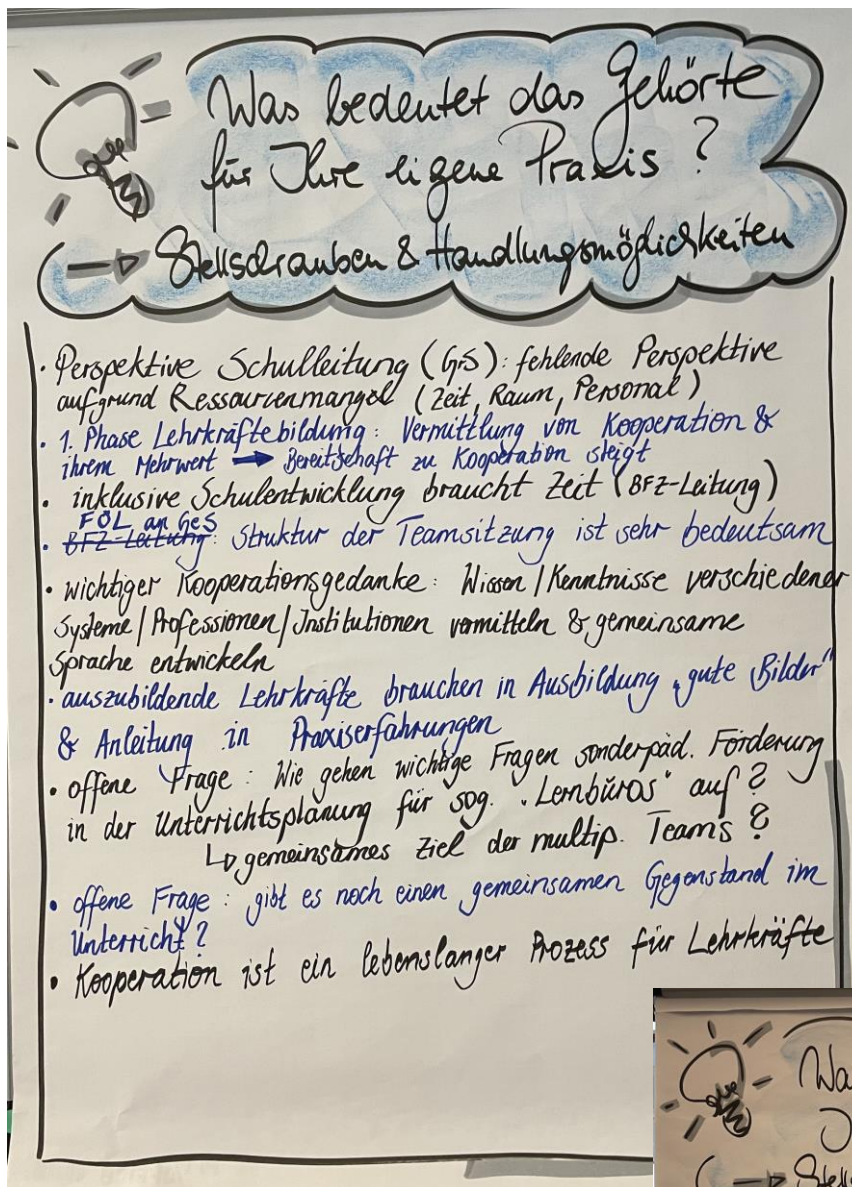 Was bedeutet das Gehörte
für Ihre eigene Praxis?
→ Stellschrauben & Handlungsmöglichkeiten
· Perspektive Schulleitung (GrS): fehlende Perspektive
aufgrund Ressourcenmangel (Zeit, Raum, Personal)
· 1. Phase Lehrkräftebildung: Vermittlung von Kooperation &
ihrem Mehrwert → Bereitschaft zu Kooperation steigt
· inklusive Schulentwicklung braucht Zeit (BFZ-Leitung)
FÖL an GeS
· BFZ-Leitung: Struktur der Teamsitzung ist sehr bedeutsam
· wichtiger Kooperationsgedanke: Wissen/Kenntnisse verschiedener
Systeme/Professionen/Institutionen vermitteln & gemeinsame
Sprache entwickeln
· auszubildende Lehrkräfte brauchen in Ausbildung „gute Bilder"
& Anleitung in Praxiserfahrungen
· offene Frage: Wie gehen wichtige Fragen sonderpäd. Förderung
in der Unterrichtsplanung für sog. „Lernbüros" auf?
↳ gemeinsames Ziel der multip. Teams?
· offene Frage: gibt es noch einen gemeinsamen Gegenstand im
Unterricht?
· Kooperation ist ein lebenslanger Prozess für Lehrkräfte
Wa
→ Stell